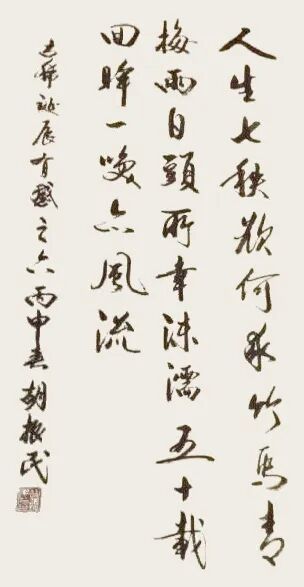 人生七秩欲何求竹馬青
梅兩白頭所幸沫濡五十載
回眸一喚亦風流
古稀誕辰有感之六丙申春胡振民